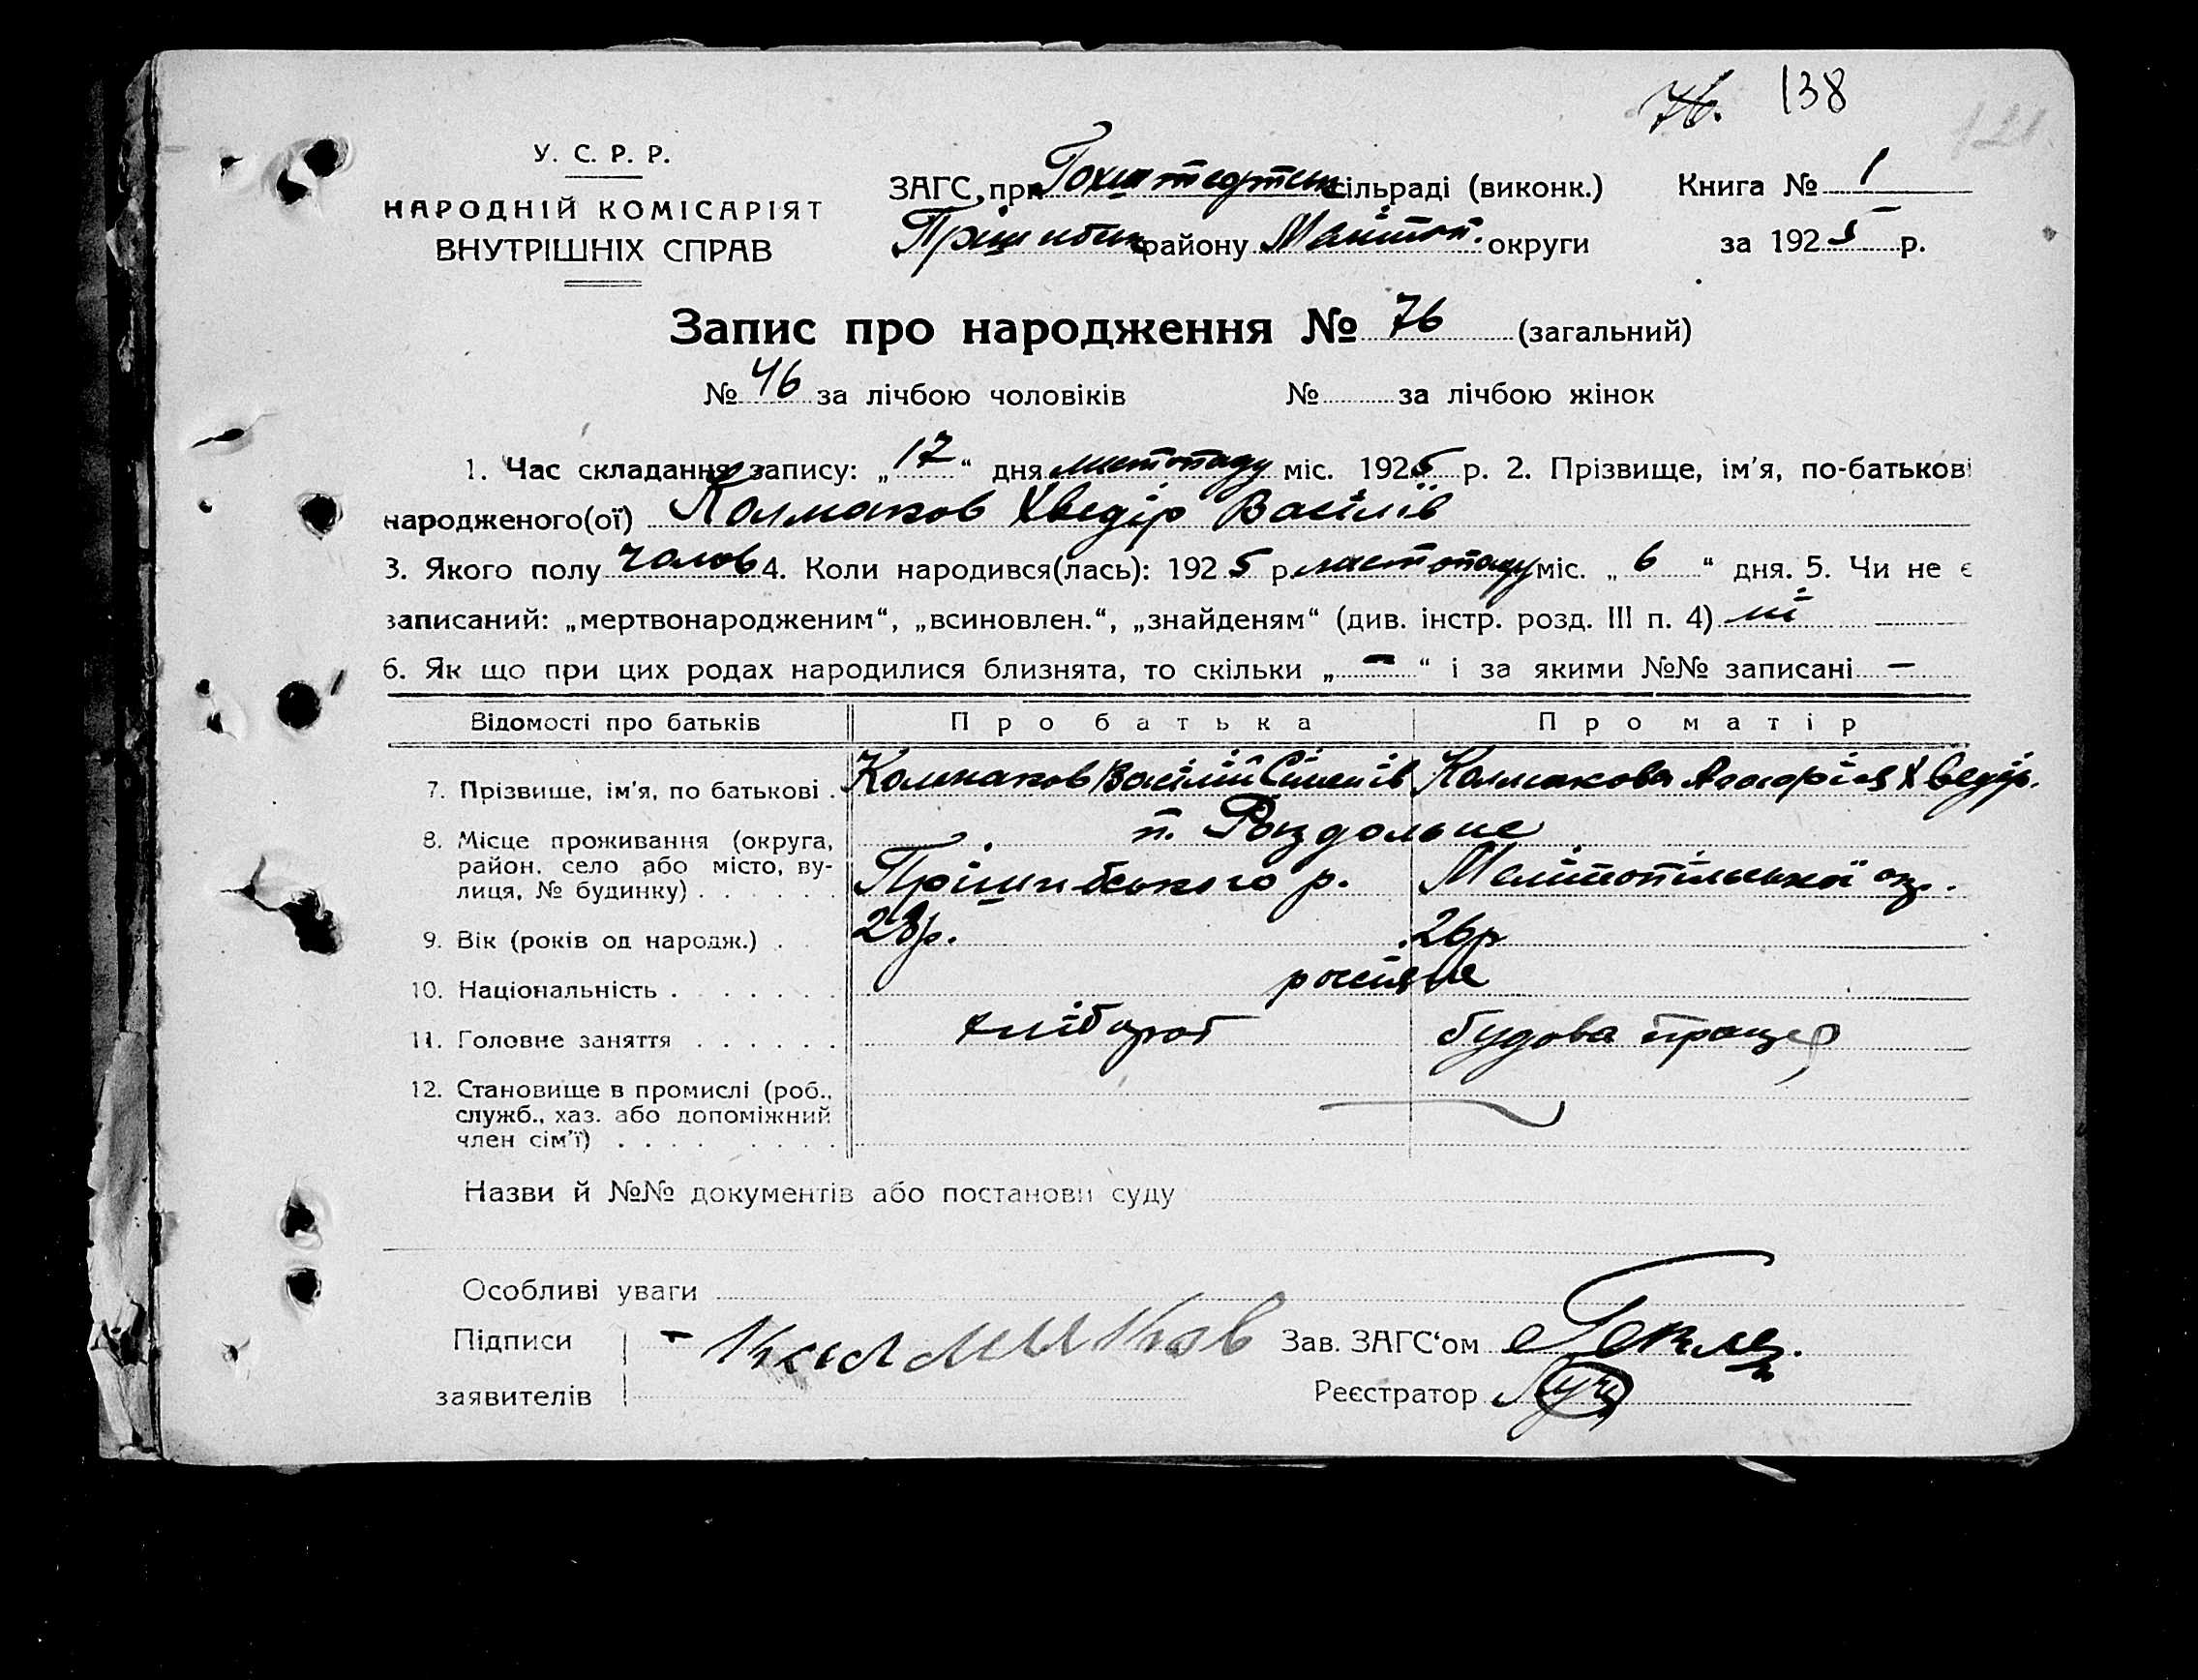 76. 138
121.
У. С. Р. Р.
НАРОДНІЙ КОМІСАРІЯТ
ВНУТРІШНІХ СПРАВ
ЗАГС при Гохштедтськ сільраді (виконк.) Книга № 1
Пришибськ району Мелітоп. округи за 1925 р.
Запис про народження № 76 (загальний)
№ 46 за лічбою чоловіків № за лічбою жінок
1. Час складання запису: „17“ дня листопаду міс. 1925 р. 2. Прізвище, ім'я, по-батькові
народженого(ої) Колмаков Хведір Васілів
3. Якого полу чолов 4. Коли народився(лась): 1925 р. листопаду міс. „6“ дня. 5. Чи не є
записаний: „мертвонародженим“, „всиновлен.“, „знайденям“ (див. інстр. розд. III п. 4) ні
6. Як що при цих родах народилися близнята, то скільки „—“ і за якими №№ записані —
Відомості про батьків Про батька Про матір
7. Прізвище, ім'я, по батькові . Колмаков Васілій Сіменів Колмакова Хведір.
п. Роздольне
8. Місце проживання (округа,
район, село або місто, ву-
лиця, № будинку) . . . . . . Прішибського р. Мелітопільської ок.
9. Вік (років од народж.) . . 28р. 26р
10. Національність . . . . . . . росіяне
11. Головне заняття . . . . . . хлібороб будова праця
12. Становище в промислі (роб.,
служб., хаз. або допоміжний
член сім'ї) . . . . . . . .
Назви й №№ документів або постанови суду
Особливі уваги
Підписи
заявителів
Колмаков
Зав. ЗАГС'ом
Реєстратор